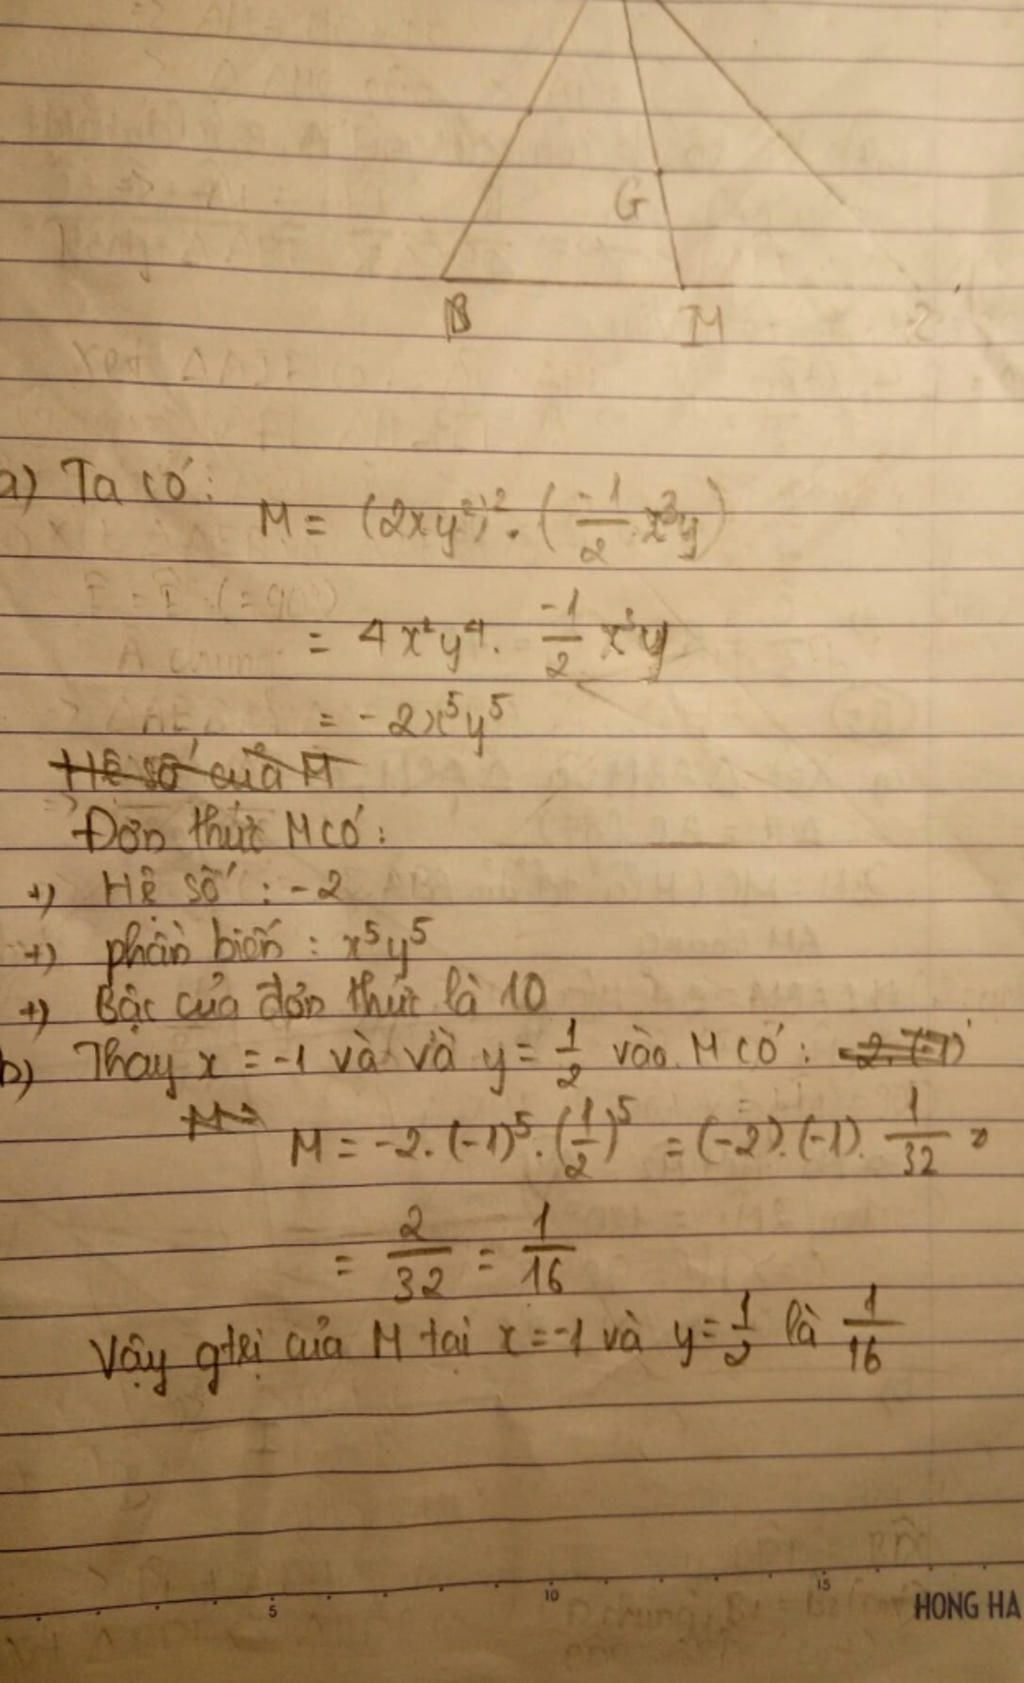 G
B M C
a) Ta có:
M = (2xy²)² . (-1/2 x³y)
= 4x²y⁴ . -1/2 x³y
= -2x⁵y⁵
Hệ số của M
Đơn thức M có:
+) Hệ số : -2
+) phần biến : x⁵y⁵
+) Bậc của đơn thức là 10
b) Thay x = -1 và và y = 1/2 vào M có : -2.(-1)
M =
M = -2.(-1)⁵.(1/2)⁵ = (-2).(-1). 1/32
= 2/32 = 1/16
Vậy gtrị của M tại x = -1 và y = 1/2 là 1/16
5 10 15
HONG HA